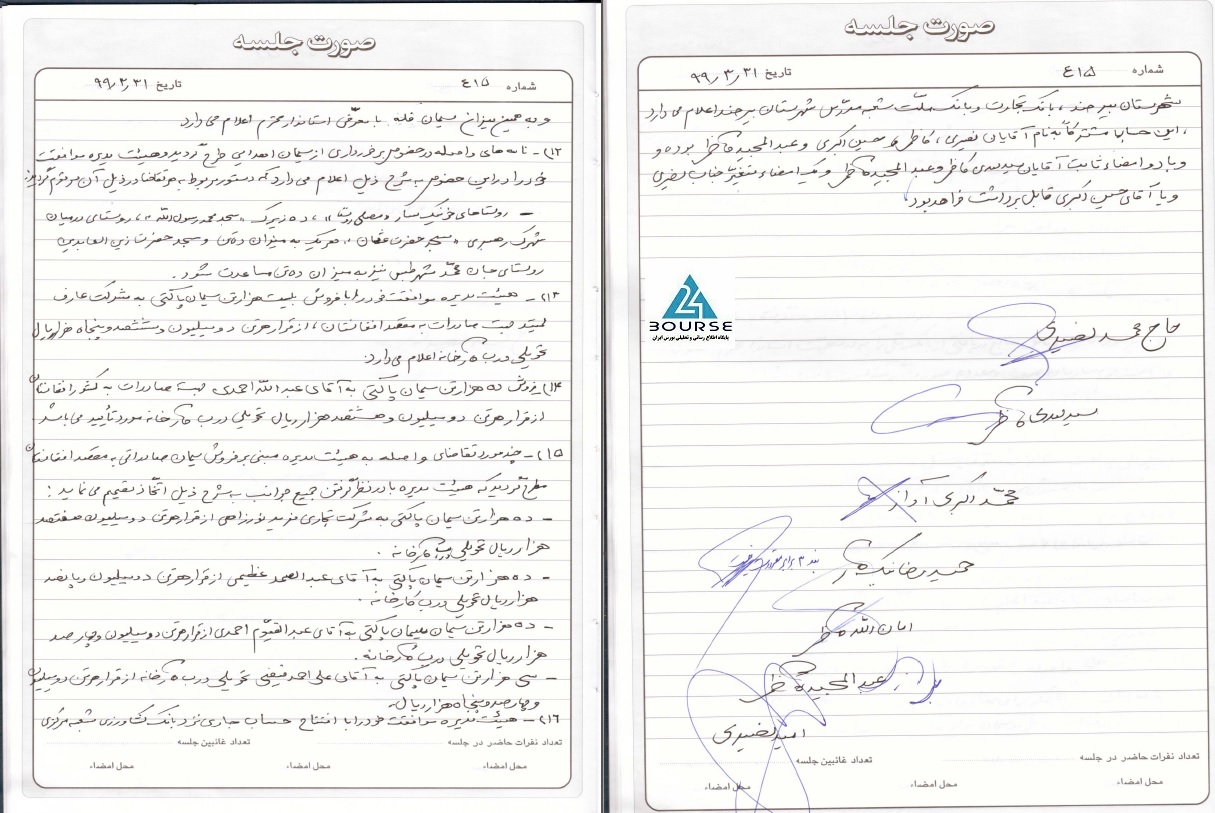 صورت جلسه
شماره ۴۱۵ تاریخ ۹۹٫۲٫۳۱
و به همین میزان سیمان قله با معرفی استاندار محترم اعلام می دارد
۱۲)- نامه های واصله در خصوص برخورداری از سیمان اهدایی طرح گردید و هیئت مدیره موافقت
خود را در این خصوص به شرح ذیل اعلام می دارد که دستور مربوط به هر تقاضا در ذیل آن مرقوم گردید:
- روستاهای خونیک سار و مصلی روستا، ده زیرک «مسجد محمد رسول الله»، روستای درمیان
شهرک رهبری «مسجد حضرت عثمان»، هر یک به میزان ده تن و مسجد حضرت زین العابدین
روستای خان محمد شهر طبس نیز به میزان ده تن مساعدت شود.
۱۳)- هیئت مدیره موافقت خود را با فروش بیست هزار تن سیمان پاکتی به شرکت عارف
لمیتد جهت صادرات به مقصد افغانستان، از قرار هر تن دو میلیون و ششصد و پنجاه هزار ریال
تحویلی درب کارخانه اعلام می دارد.
۱۴) فروش ده هزار تن سیمان پاکتی به آقای عبدالله احمدی جهت صادرات به کشور افغانستان
از قرار هر تن دو میلیون و هشتصد هزار ریال تحویلی درب کارخانه مورد تأیید می باشد.
۱۵)- چند مورد تقاضای واصله به هیئت مدیره مبنی بر فروش سیمان صادراتی به مقصد افغانستان
مطرح گردید که هیئت مدیره با در نظر گرفتن جمیع جوانب به شرح ذیل اتخاذ تصمیم می نماید:
- ده هزار تن سیمان پاکتی به شرکت تجاری فرید نورزاهی از قرار هر تن دو میلیون و هفتصد
هزار ریال تحویلی درب کارخانه.
- ده هزار تن سیمان پاکتی به آقای عبدالصمد عظیمی از قرار هر تن دو میلیون و پانصد
هزار ریال تحویلی درب کارخانه.
- ده هزار تن سیمان پاکتی به آقای عبدالقیوم احمدی از قرار هر تن دو میلیون و چهارصد
هزار ریال تحویلی درب کارخانه.
- سی هزار تن سیمان پاکتی به آقای علی احمد فیضی تحویلی درب کارخانه از قرار هر تن دو میلیون
و چهارصد و پنجاه هزار ریال.
۱۶)- هیئت مدیره موافقت خود را با افتتاح حساب جاری نزد بانک کشاورزی شعبه مرکزی
تعداد نفرات حاضر در جلسه تعداد غائبین جلسه
محل امضاء محل امضاء محل امضاء
صورت جلسه
شماره ۴۱۵ تاریخ ۹۹٫۳٫۳۱
شهرستان بیرجند، بانک تجارت و بانک ملت شعبه مدرس شهرستان بیرجند اعلام می دارد
، این حساب مشترکاً به نام آقایان نصیری، کاظمی، حسین اکبری و عبدالمجید کاظمی بوده و
و با دو امضاء ثابت آقایان سیدمهدی کاظمی و عبدالمجید کاظمی و یک امضاء متغیر جناب نصیری
و یا آقای حسین اکبری قابل برداشت خواهد بود.
BOURSE
24
پایگاه اطلاع رسانی و تحلیلی بورس ایران
حاج محمد نصیری
سیدمهدی کاظمی
محمد اکبری آواز
حمیدرضا نیک کار
امان الله کاظمی
عبدالمجید کاظمی
امید نصیری
تعداد نفرات حاضر در جلسه تعداد غائبین جلسه
محل امضاء محل امضاء محل امضاء